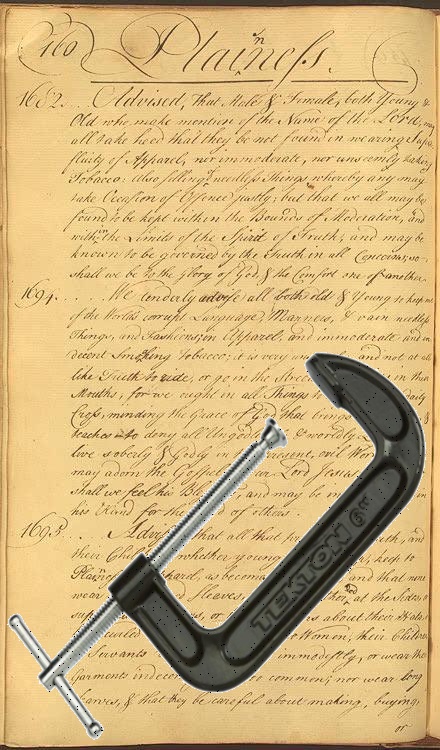 160
Plainness.
1682... Advised, that Male & Female, both Young &
Old who make mention of the Name of the Lord, may
all take heed that they be not found in wearing Supe
fluity of Apparel, nor immoderate, nor unseemly taking
Tobacco: also selling needless Things whereby any may
take Occasion of Offence justly; but that we all may be
found to be kept within the Bounds of Moderation, and
within the Limits of the Spirit of Truth; and may be
known to be governed by the Truth in all Concerns, so
shall we be to the Glory of God, & the Comfort one of another.
1694. .... We tenderly advise all both old & Young to keep
of the World's corrupt Language, Manners, & vain needless
Things, and Fashions, in Apparel, and immoderate and in
decent Smoking Tobacco; it is very and not at all
like Truth to ride, or go in the Stree in their
Mouths, for we ought in all Things to Daily
Cross, minding the Grace of God that brings
teaches to deny all Ungod & worldly
live soberly & Godly in present, evil Worl
may adorn the Gospel our Lord Jesus
shall we feel his Ble , and may be in
his Hand for the of others.
1695. Advi that all that pro th, and
their Chil whether young , keep to
Plain ard, as becom and that none
wear Sleeves, at the Sides, or
sup s, or s about their
Women, their Children
Servants immodestly, or wear their
Garments indecen too common; nor wear long
Scarves, & that they be careful about making, buying,
or
TEKTON 6"